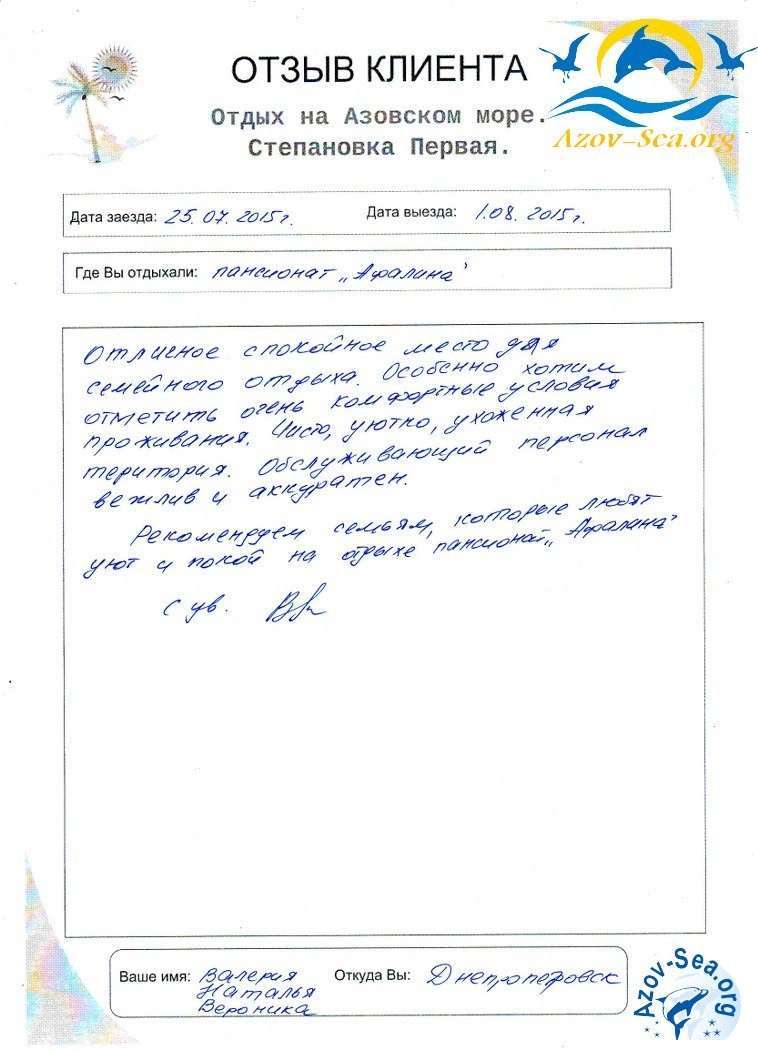 ОТЗЫВ КЛИЕНТА
Отдых на Азовском море.
Степановка Первая.
Azov-Sea.org
Дата заезда: 25.07.2015г.
Дата выезда: 1.08.2015г.
Где Вы отдыхали: пансионат „Афалина"
Отличное спокойное место для
семейного отдыха. Особенно хотим
отметить очень комфортные условия
проживания. Чисто, уютно, ухоженная
територия. Обслуживающий персонал
вежлив и аккуратен.
Рекомендуем семьям, которые любят
уют и покой на отдыхе пансионат „Афалина"
С ув.
Ваше имя: Валерия
Наталья
Вероника
Откуда Вы: Днепропетровск
Azov-Sea.org